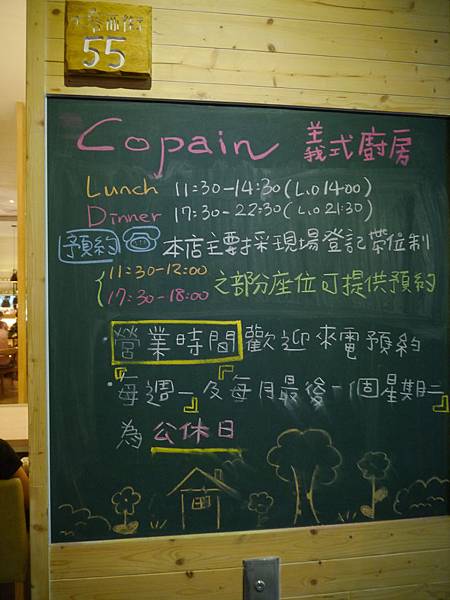 街
55
Copain 義式廚房
Lunch 11:30-14:30 (L.O 14:00)
Dinner 17:30-22:30 (L.O 21:30)
預約 本店主要採現場登記帶位制
11:30-12:00
17:30-18:00 之部分座位可提供預約
・營業時間歡迎來電預約
・每週一及每月最後一個星期二
為公休日